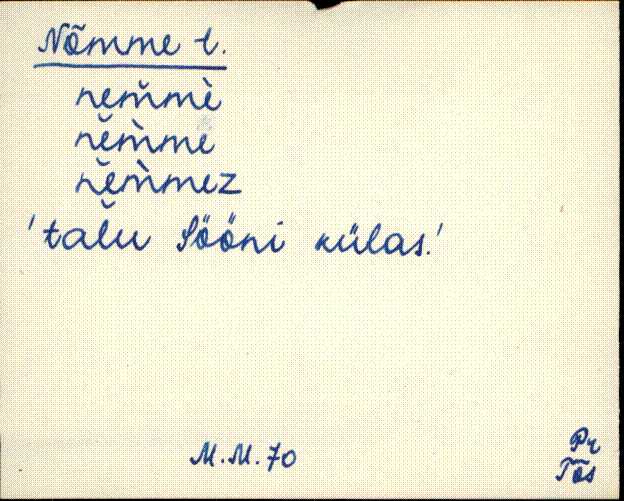 Nõmme t.
nem̆mè
nĕm̀me
nĕm̀mez
'talŭ Sööni külas.'
M.M.70
Pr
Tõs